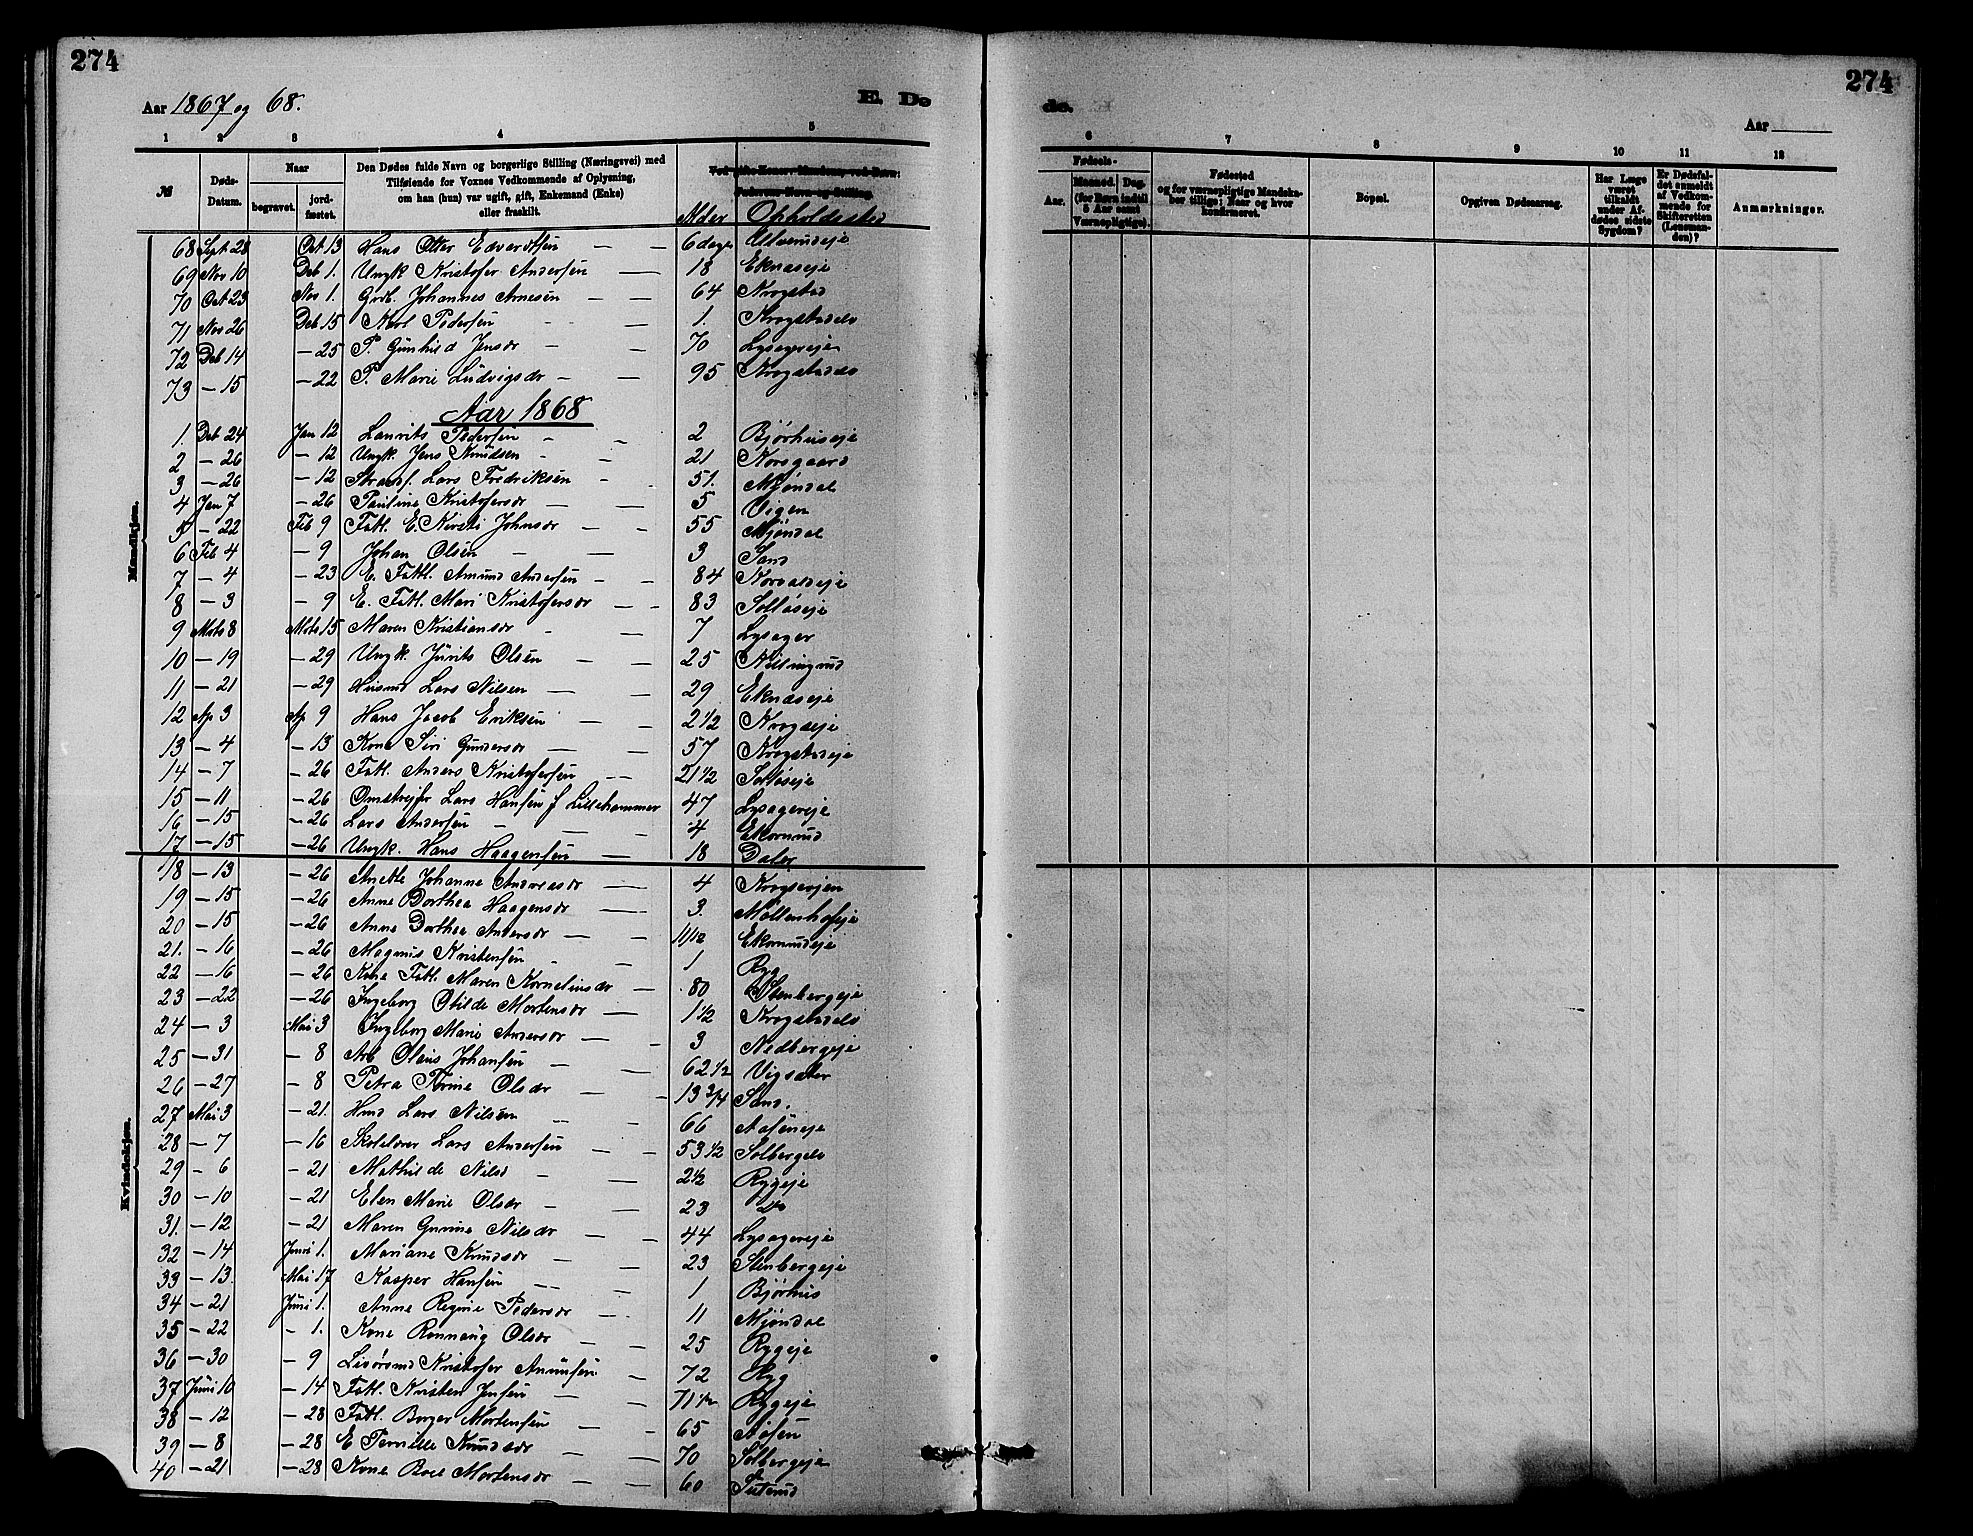 274
274
Aar 1867 og 68.
E. Dø
de.
Aar
1 2 3 4 5
6 7 8 9 10 11 12
№
Døds-Datum.
Naar
begravet.
jord-fæstet.
Den Dødes fulde Navn og borgerlige Stilling (Næringsvei) med Tilføiende for Voxnes Vedkommende af Oplysning, om han (hun) var ugift, gift, Enkemand (Enke) eller fraskilt.
Alder
Opholdssted
Fødsels-
Aar.
Maaned. Dag.
(for Børn indtil 5 Aar samt Værnepligtige).
Fødested og for værnepligtige Mandskaber tillige; Naar og hvor konfirmeret.
Bopæl.
Opgiven Dødsaarsag.
Har Læge været tilkaldt under Afdødes sidste Sygdom?
Er Dødsfaldet anmeldt af Vedkommende for Skifteretten (Lensmanden)?
Anmærkninger.
Mandkjøn.
68 Sept 28 Oct 13 Hans Otter Edvardsen — — 6 dage
69 Nov 10 Deb 1. Ungk Kristofer Andersen — 18 Eknæseje
70 Oct 23 Nov 1. Grdb. Johannes Arnesen — — 64 Krogstad
71 Nov 26 Deb 15 Karl Pedersen — 1. Krogstadeie
72 Deb 14 — 25 P. Gunhild Jensdr — — 70 Lysagreje
73 — 15 — 22 P. Marie Ludvigsdr — — 95
Aar 1868
1. Deb 24 Jan 12 Laurits Pedersen - — 2 Bjørhuseje
2 — 26 — 12 Ungk. Jens Knudsen - - 21 Korsgaard
3 — 26 — 12 Lars Fredriksen - — 51. Mjøndal
4 Jan 7 — 26 Pauline Kristofersdr — — 5 Vigen
5 — 22 Feb 9 Fatl. E. Kirsti Johnsdr — — 55 Mjøndal
6 Feb 4 — 9 Johan Olsen - — 3 Sand
7 — 4 — 23 E. Fatl. Amund Andersen — - 84
8 — 3 — 9 E. Fatl. Mari Kristofersdr — - 83
9 Mots 8 Mots 15 Maren Kristiansdr - — 7 Lysager
10 — 19 — 29 Ungk. Jurits Olsen — — 25
11 — 21 — 29 Husmd Lars Nilsen — — 29 Eknæseje
12 Ap 3 Ap 9 Hans Jacob Eriksen — — 2 1/2 Krogseje
13 — 4 — 13 Kone Siri Gundersdr — — 57 Krogstadeje
14 — 7 — 26 Fatl. Anders Kristofersen — - 21 1/2
15 — 11 — 26 Omstrejfer Lars Hansen f Lillehammer 47 Lysagereje
16 — 15 — 26 Lars Andersen - — — 4 Ekornrud
17 — 15 — 26 Ungk. Hans Haagensen — 18 Daler
Kvindekjøn.
18 — 13 — 26 Anette Johanne Andreasdr — 4
19 — 15 — 26 Anne Dorthea Haagensdr — 3. Møllenhofeje
20 — 15 — 26 Anne Dorthea Andersdr — — 11/12 Ekornrudeje
21. — 16 — 26 Magnus Kristensen - - 1 Ryg
22 — 16 — 26 Kone Fatl. Maren Kornelinsdr — 80 Stenbergeje
23 — 22 — 26 Ingeborg Otilde Mortensdr — 1 1/2 Krogstadeie
24 — 3 Mai 3 Ingeborg Marie Andersdr — 3 Nedbergeje
25 — 31 — 8 Arb Olaus Johansen — — 62 1/2 Vigsæter
26 — 27 — 8 Petra Trine Olsdr — — 13 3/4 Sand.
27 Mai 3 — 21. Hmd Lars Nilsen — 66 Aaseneje
28 — 7 — 16 Skolelærer Lars Andersen — 53 1/2
29 — 6 — 21 Mathilde Nilsd - — 2 1/2 Rygeje
30 — 10 — 21 Elen Marie Olsdr - — 23 Do
31. — 12 — 21 Maren Gurine Nilsdr — — 44 Lysagereje
32 — 14 Juni 1. Mariane Knudsdr — — 23 Stenbergeje
33 — 13. Mai 17 Kasper Hansen — — 1 Bjørhus
34 — 21 Juni 1. Anne Regine Pedersdr — — 11 Mjøndal
35 — 22 - 1. Kone Rønnaug Olsdr — — 25 Rygeje
36 — 30 — 9 Kristofer Amundsen — 72 Ryg
37 Juni 10 — 14 Fatl. Kristen Jensen — — 71 1/2 Rygeje
38 — 12 — 28 Fatl. Borger Mortensen — — 65 Aasen
39 — 8 — 28 E Pernille Knudsdr — — 70 Solbergeje
40 — 21 — 28 Kone Boel Mortensdr — — 60